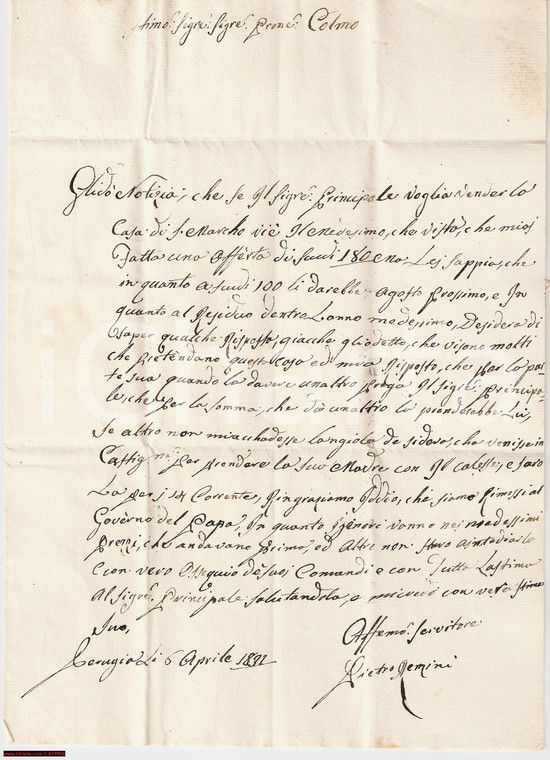 Sigre: Sigre: Prone: Colmo
Gli do Notizia, che se Il Sigre: Principale voglia vender la
Casa di S. Marcho vi è Il medesimo, che visto, che mi à
Fatta una Offerta di Scudi 180 ma Lei Sappia, che
in quanto a Scudi 100 li darebbe Agosto Prossimo, e In
quanto al Residuo dentro Lanno medessimo, Desidera di
Saper qualche Risposta, giacche gli o detto, che vi sono molti
che Pretendano questa Casa ed mi a Risposto, che per la par=
te sua quando la da vere un altro Prega Il Sigre: Principa=
le, che Per la Somma, che dà un altro la prenderebbe Lui,
Se altro non mi acchadesse Langiola de sidera, che venisse in
Castig. Per prendere la Sua Madre con Il Calesse, e sarà
La Per j Corrente, Ringraziamo Iddio, che siamo Rimessi al
Governo del Papa, In quanto Generi vanno nei medessimi
Prezzi, che andavano Prima, ed Altro non Stero
con vero Ossequio de suoi Comandi e con Tutta La stima
Al Sigre: Principale Salutandola, e mi con vera Stima
Suo,
Perugia Li 6 Aprile 1831
Affemo: Servitore
Pietro Remini